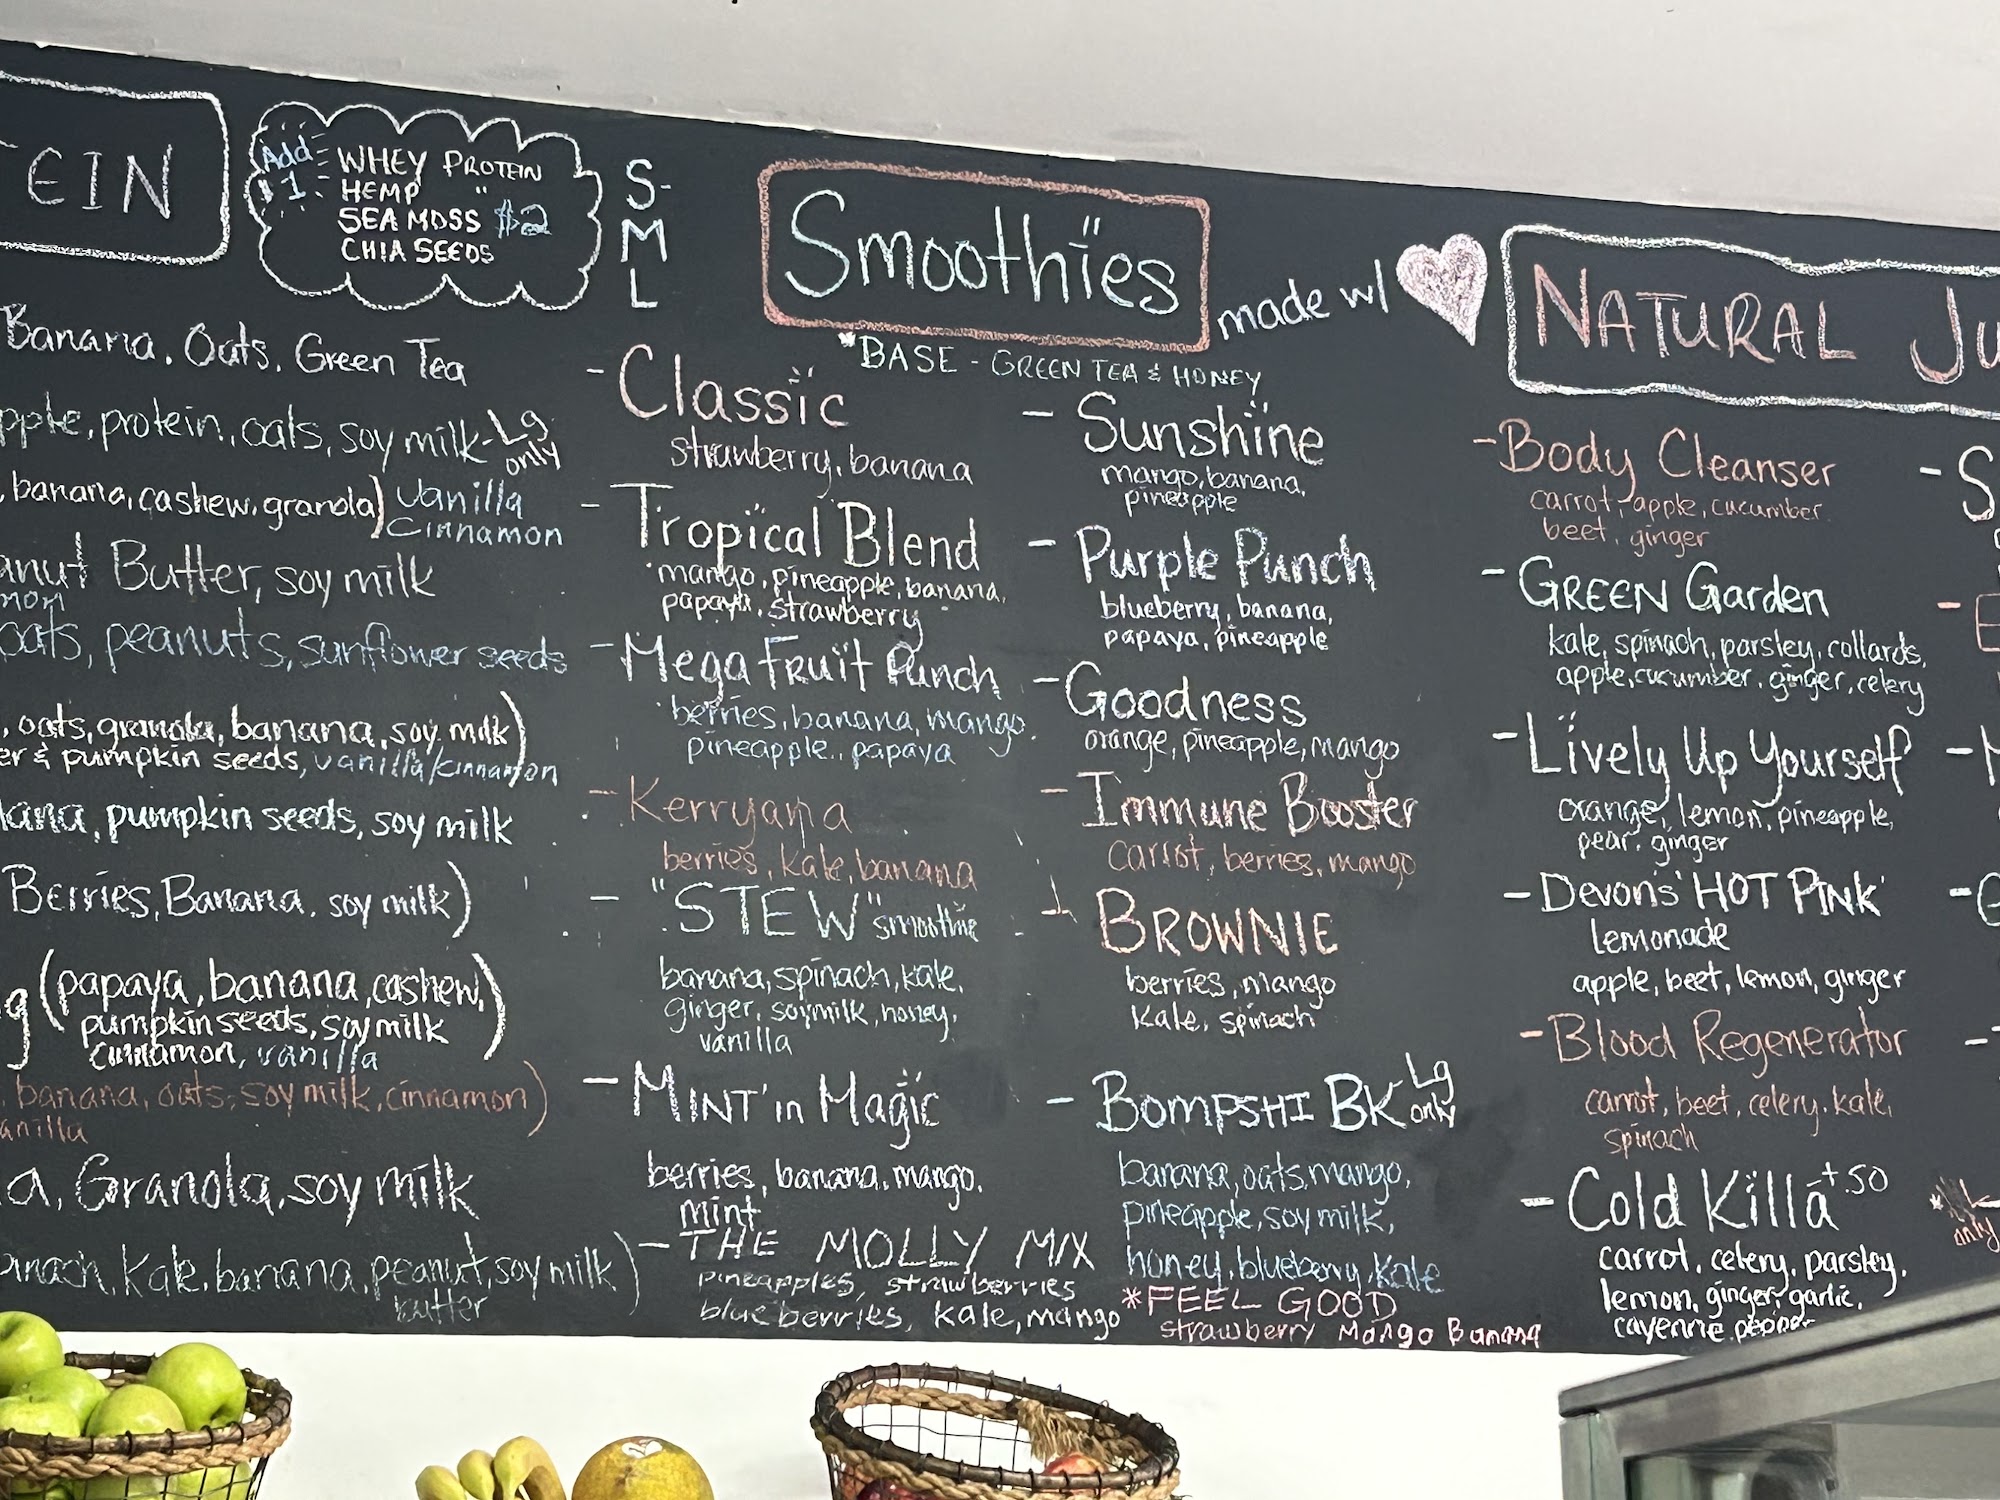 EIN
Add WHEY PROTEIN
$1 HEMP "
SEA MOSS $2
CHIA SEEDS
S-
M
L
Banana, Oats, Green Tea
pple, protein, oats, soy milk - Lg
only
, banana, cashew, granola) vanilla
cinnamon
anut Butter, soy milk
mon
oats, peanuts, sunflower seeds
, oats, granola, banana, soy milk)
er & pumpkin seeds, vanilla/cinnamon
nana, pumpkin seeds, soy milk
Berries, Banana, soy milk)
g (papaya, banana, cashew,
pumpkin seeds, soy milk)
cinnamon, vanilla
, banana, oats, soy milk, cinnamon)
anilla
a, Granola, soy milk
pinach, Kale, banana, peanut, soy milk)
butter
Smoothies
made w/
*BASE - GREEN TEA & HONEY
- Classic
strawberry, banana
- Tropical Blend
mango, pineapple, banana,
papaya, strawberry
- Mega Fruit Punch
berries, banana, mango,
pineapple, papaya
- Kerryana
berries, kale, banana
- "STEW" smoothie
banana, spinach, kale,
ginger, soymilk, honey,
vanilla
- MINT' in Magic
berries, banana, mango,
mint
- THE MOLLY MIX
pineapples, strawberries
blueberries, kale, mango
- Sunshine
mango, banana,
pineapple
- Purple Punch
blueberry, banana,
papaya, pineapple
- Goodness
orange, pineapple, mango
- Immune Booster
carrot, berries, mango
- BROWNIE
berries, mango
kale, spinach
- BOMPSHI BK - Lg
only
banana, oats, mango,
pineapple, soy milk,
honey, blueberry, kale
*FEEL GOOD
strawberry Mango Banana
NATURAL Ju
- Body Cleanser
carrot, apple, cucumber
beet, ginger
- GREEN Garden
kale, spinach, parsley, collards,
apple, cucumber, ginger, celery
- Lively Up Yourself
orange, lemon, pineapple,
pear, ginger
- Devon's 'HOT PINK'
lemonade
apple, beet, lemon, ginger
- Blood Regenerator
carrot, beet, celery, kale,
spinach
- Cold Killa +.50
carrot, celery, parsley,
lemon, ginger, garlic,
cayenne pepper
- S
only